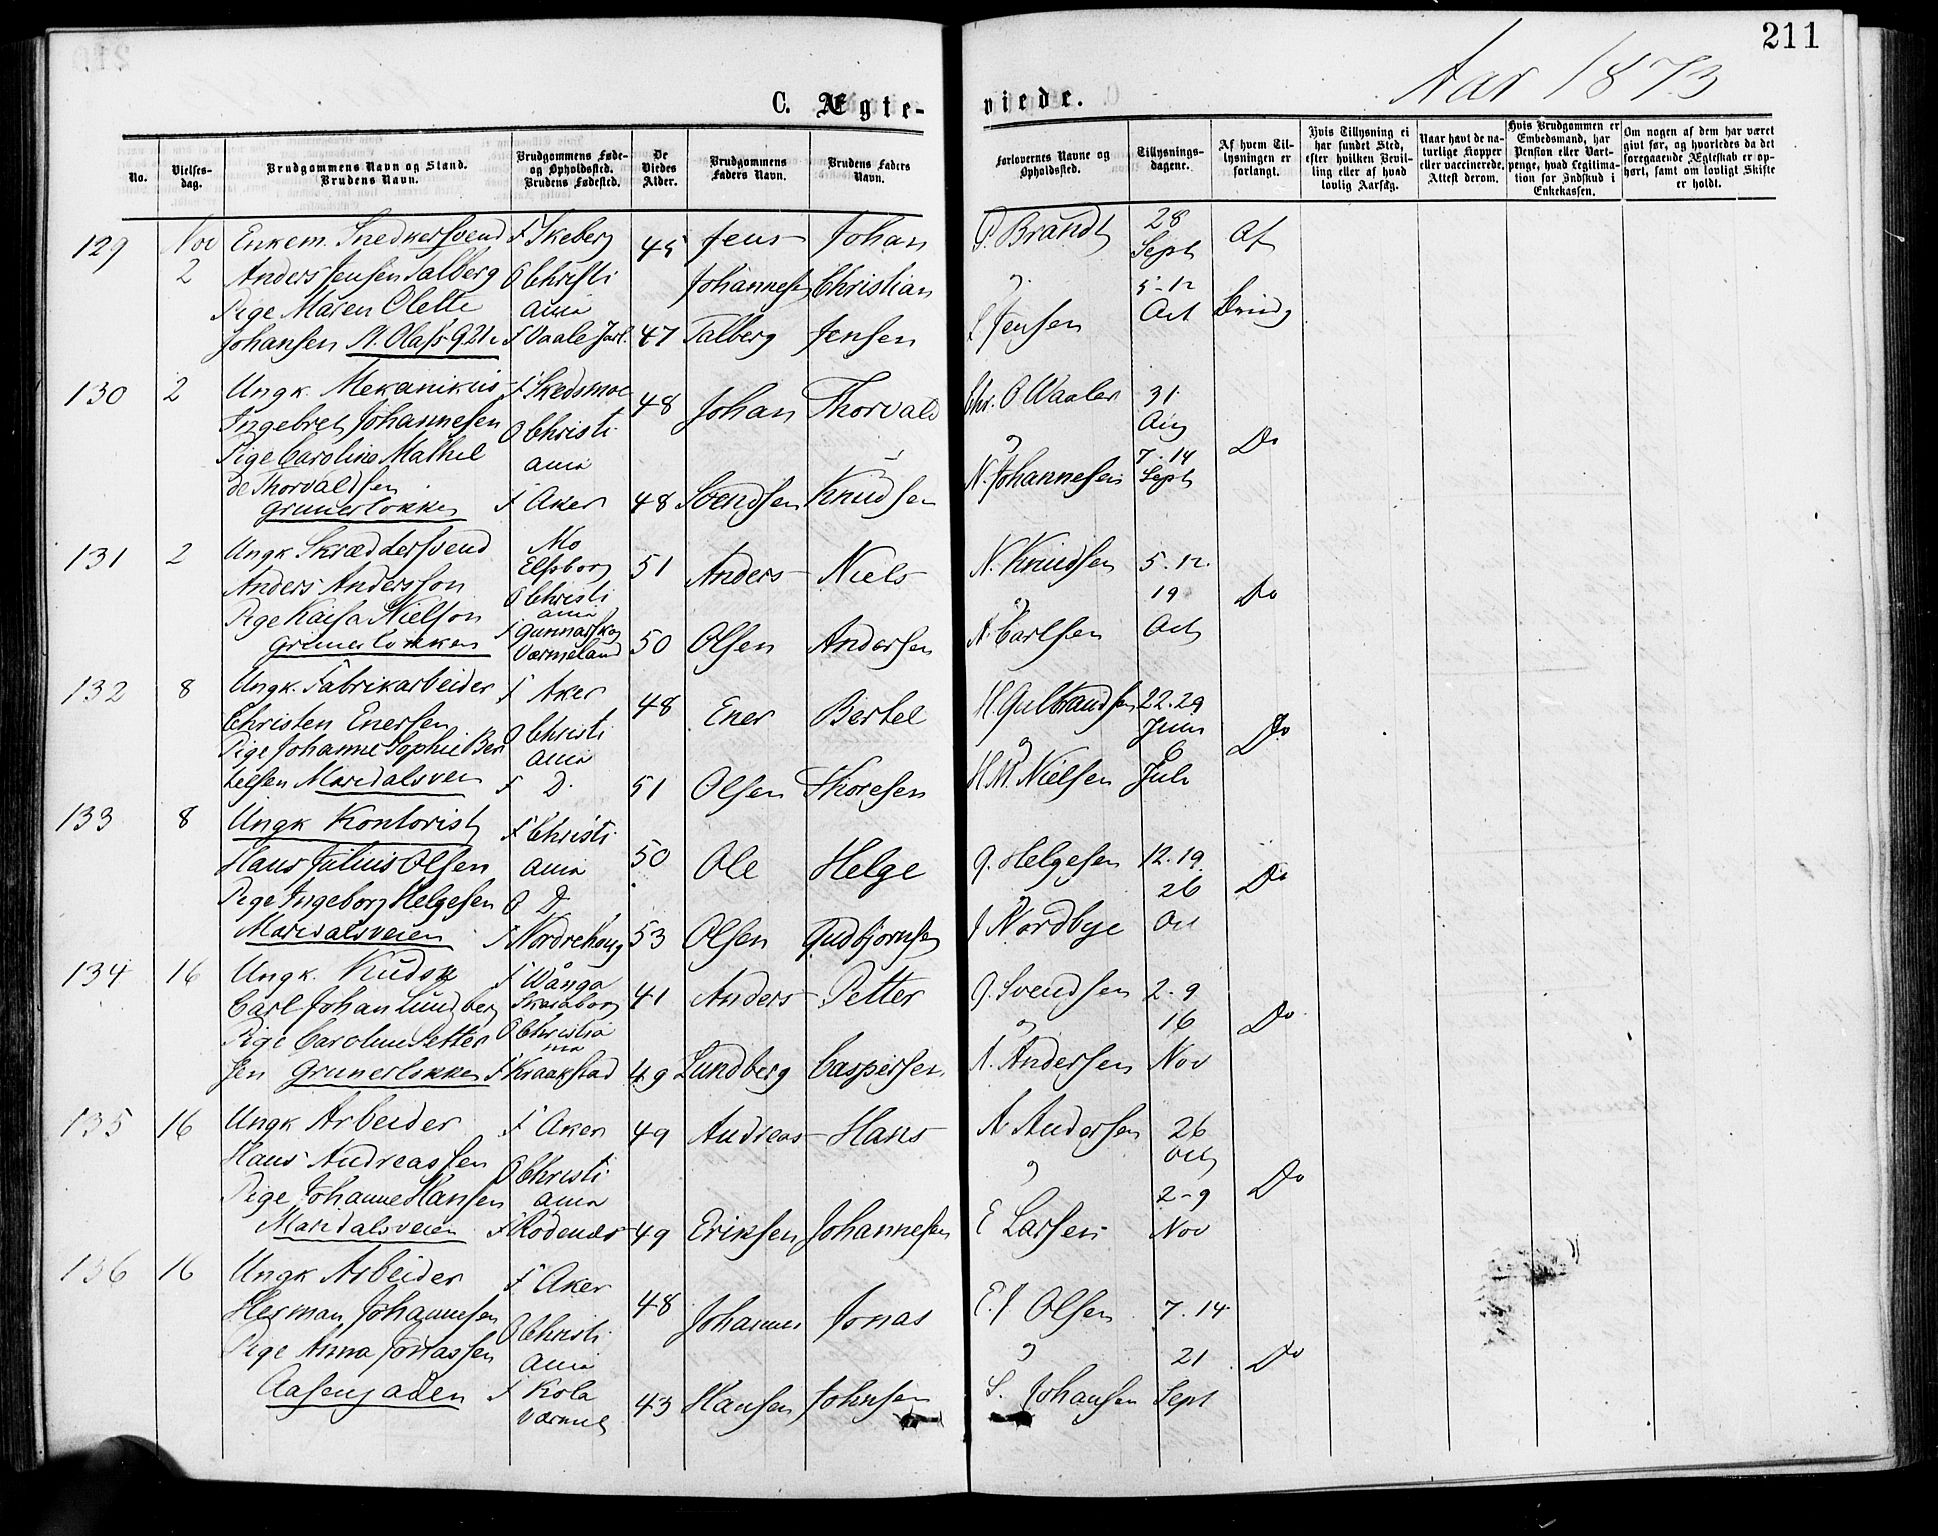 211
Aar 1873
C. Ægte-
viede.
No.
Vielses-
dag.
Brudgommens Navn og Stand.
Brudens Navn.
Brudgommens Føde-
og Opholdssted.
Brudens Fødested.
De
Viedes
Alder.
Brudgommens
Faders Navn.
Brudens Faders
Navn.
Forlovernes Navne og
Opholdssted.
Tillysnings-
dagene.
Af hvem Til-
lysningen er
forlangt.
Hvis Tillysning ei
har fundet Sted,
efter hvilken Bevil-
ling eller af hvad
lovlig Aarsag.
Naar havt de na-
turlige Kopper
eller vaccinerede.
Attest derom.
Hvis Brudgommen er
Embedsmand, har
Pension eller Vart-
penge, hvad Legitima-
tion for Indskud i
Enkekassen.
Om nogen af dem har været
givt før, og hvorledes da det
foregaaende Ægteskab er op-
hørt, samt om lovligt Skifte
er holdt.
129 Nov Enkem. Snedkersvend F Skeberg 45 Jens Johan P. Brandt 28 Af
2 Anders Jensen Talberg O Christi Johannesen Christian Sept
Pige Maren Olette ania og 5-12
Johansen St. Olafs G 21 F Vaale Jarl. 47 Talberg Jensen Jensen Oct Brudg
130 2 Ungk. Mekanikus F Skedsmoe 48 Johan Thorvald Chr. O Waaler 31
Ingebret Johannesen O Christi Aug
Pige Caroline Mathil ania og 7.14 Do
de Thorvaldsen N. Johannesen Sept
Grunerløkken F Aker 48 Svendsen Knudsen
131 2 Ungk Skræddersvend Mo 51 Anders Niels N. Knudsen 5.12.
Anders Andersson Elfsborg
Pige Kaisa Nielson O Christi ania og 19 Do
Grunerløkken F Gunnarskog Værmeland 50 Olsen Andersen A. Carlsen Oct
132 8 Ungk. Fabrikarbeider F Aker 48 Ener Bertel H Gulbrandsen 22.29
Christen Enersen O Christi Juni
Pige Johanne Sophie Ber ania og 6 Do
telsen Maridalsveien F D. 51 Olsen Thoresen H M. Nielsen Juli
133 8 Ungk Kontorist F Christi 50 Ole Helge G. Helgesen 12.19
Hans Julius Olsen ania
Pige Ingeborg Helgesen O D og 26 Do
Maridalsveien F Nordrehoug 53 Olsen Gudbjornsen J Nordbye Oct
134 16 Ungk. Kudsk F Wånga 41 Anders Petter G. Svendsen 2-9
Carl Johan Lundberg Skaraborg
Pige Caroline Petter O Christia nia og 16 Do
sen Grunerløkken F Kraakstad 49 Lundberg Caspersen A. Andersen Nov
135 16 Ungk Arbeider F Aker 49 Andreas Hans A. Andersen 26
Hans Andreassen O Christi Oct
Pige Johanne Hansen ania og 2-9 Do
Maridalsveien F Rødenæs 49 Eriksen Johannesen E Larsen Nov
136 16 Ungk Arbeider F Aker 48 Johannes Jonas E. J. Olsen 7.14
Herman Johannesen O Christi
Pige Anna Jonassen ania og 21 Do
Aasengaden F Kola Værmel 43 Hansen Johnsen S. Johansen Sept